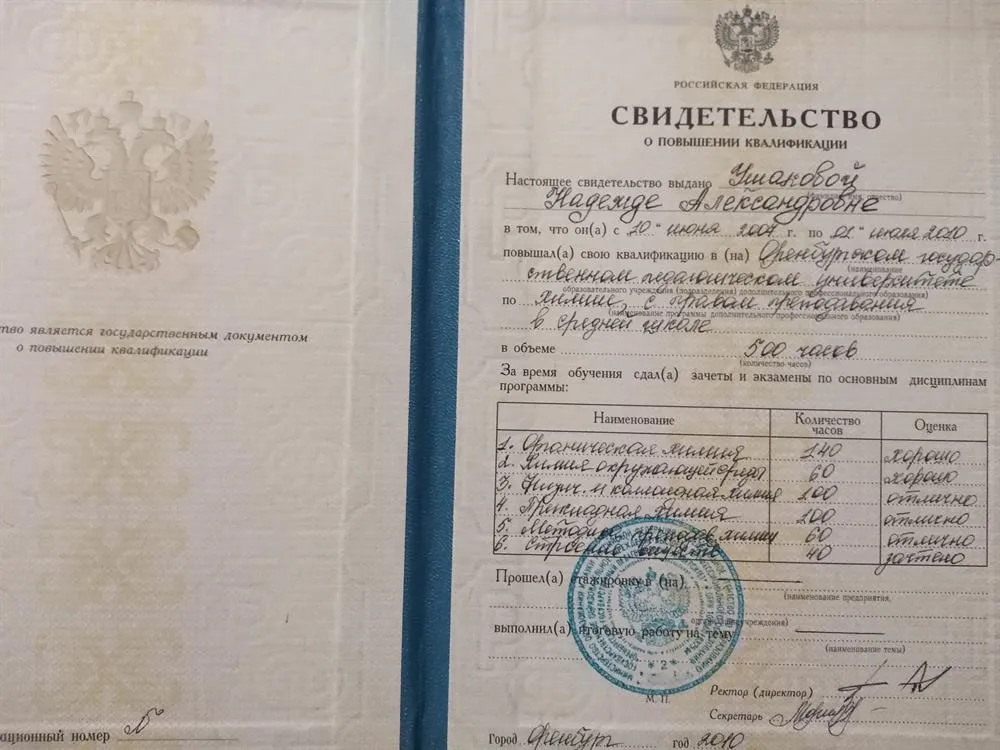 тво является государственным документом
о повышении квалификации
ационный номер
РОССИЙСКАЯ ФЕДЕРАЦИЯ
СВИДЕТЕЛЬСТВО
О ПОВЫШЕНИИ КВАЛИФИКАЦИИ
Настоящее свидетельство выдано Ушаковой
Надежде Александровне
в том, что он(а) с 20 " июня 2007 г. по 02 " июля 2010 г.
повышал(а) свою квалификацию в (на) Оренбургском государ-
(наименование
ственном педагогическом университете
образовательного учреждения (подразделения) дополнительного профессионального образования)
по химии, с правом преподавания
(наименование программы дополнительного профессионального образования)
в средней школе
в объеме 500 часов
(количество часов)
За время обучения сдал(а) зачеты и экзамены по основным дисциплинам
программы:
Наименование Количество часов Оценка
1. Органическая химия 140 хорошо
2. Химия окружающей среды 60 хорошо
3. Физич. и коллоидная химия 100 отлично
4. Прикладная химия 100 отлично
5. Методика препод. химии 60 отлично
6. Строение вещества 40 зачтено
Прошел(а) стажировку в (на)
(наименование предприятия,
организации, учреждения)
выполнил(а) итоговую работу на тему
(наименование темы)
* 2 *
М. П.
Ректор (директор)
Секретарь
Город Оренбург год 2010